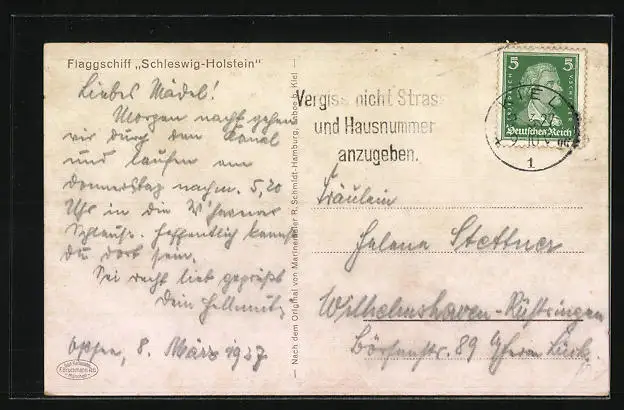 Flaggschiff „Schleswig-Holstein"
Liebes Mädel!
Morgen nacht gehen
wir durch den Kanal
und laufen am
Donnerstag nachm. 5,20
Uhr in die W'havener
Schleuse. Hoffentlich kannst
du dort sein.
Sei recht lieb gegrüßt
Dein Hellmut
8. März 1927
Nach dem Original von Marinemaler R. Schmidt-Hamburg, Laboe b. Kiel
Vergiss nicht Strass
und Hausnummer
anzugeben.
KIEL
1
5 5
Deutsches Reich
Fräulein
Helene Stettner
Wilhelmshaven-Rüstringen
Börsenstr. 89